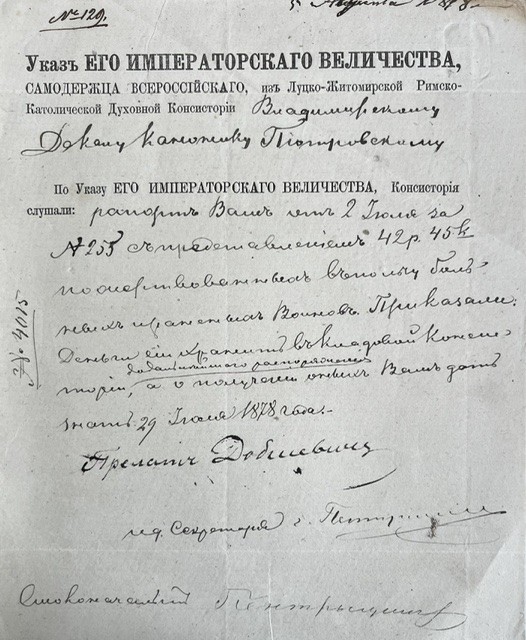 № 129.
5 Августа 1878
Указъ ЕГО ИМПЕРАТОРСКАГО ВЕЛИЧЕСТВА,
САМОДЕРЖЦА ВСЕРОССІЙСКАГО, изъ Луцко-Житомирской Римско-
Католической Духовной Консисторіи Владимирскому
Декану Канонику Піотровскому
По Указу ЕГО ИМПЕРАТОРСКАГО ВЕЛИЧЕСТВА, Консисторія
слушали: рапортъ Вашъ отъ 2 Іюля за
№ 255 съ представленіемъ 42 р. 45 к
пожертвованныхъ въ пользу боль-
ныхъ и раненыхъ Воиновъ. Приказали:
Деньги сіи хранить въ кладовой Консис-
до дальнейшаго распоряженія
торіи, а о полученіи оныхъ Вамъ дать
знать. 29 Іюля 1878 года.
№ 4015
Прелатъ
и. д. Секретаря
Столоначальникъ